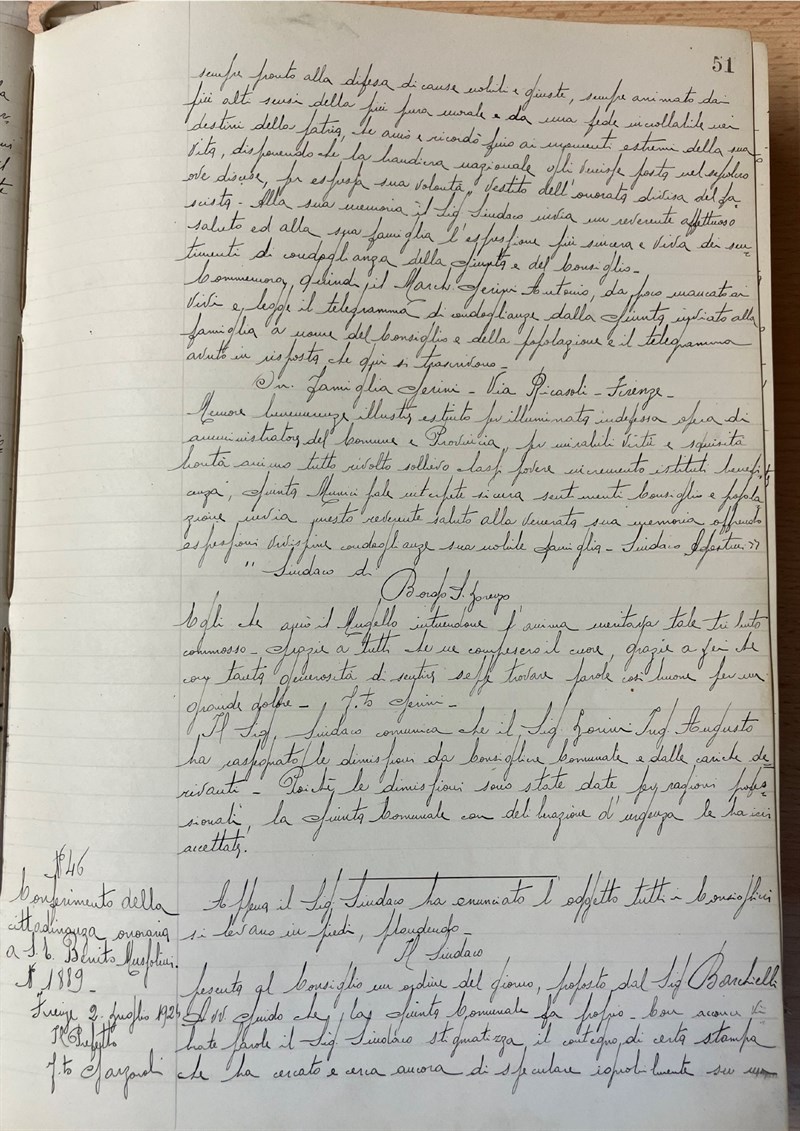 51
sempre pronto alla difesa di cause nobili e giuste, sempre animato dai
più alti sensi della più pura morale e da una fede incrollabile nei
destini della patria, che amò e ricordò fino ai momenti estremi della sua
vita, disponendo che la bandiera nazionale gli venisse posta nel sepolcro
ove discese, per espressa sua volontà, vestito dell'onorata divisa del fa-
scista - Alla sua memoria il Sig Sindaco invia un reverente affettuoso
saluto ed alla sua famiglia l'espressione più sincera e viva dei sen-
timenti di condoglianza della Giunta e del Consiglio -
Commemora, quindi, il March. Gerini Antonio, da poco mancato ai
vivi e, legge il telegramma di condoglianze dalla Giunta inviato alla
famiglia a nome del Consiglio e della popolazione e il telegramma
avuto in risposta che qui si trascrivono -
On. Famiglia Gerini - Via Ricasoli - Firenze -
Memore benemerenze illustre estinto per illuminata indefessa opera di
amministratore del Comune e Provincia, per mirabili virtù e squisita
bontà animo tutto rivolto sollievo classi povere incremento istituti benefi
cenza, Giunta Municipale interprete sincera sentimenti Consiglio e popola
zione invia questo reverente saluto alla venerata sua memoria offrendo
espressioni vivissime condoglianze sua nobile famiglia - Sindaco
" Sindaco di
Borgo S. Lorenzo
Egli che amò il Mugello intuendone l'anima meritava tale tributo
commosso - Grazie a tutti che ne compresero il cuore, grazie a Lei che
con tanta generosità di sentire seppe trovare parole così buone per un
grande dolore - F.to Gerini -
Il Sig, Sindaco comunica che il Sig Zorini Ing Augusto
ha rassegnato le dimissioni da Consigliere Comunale e dalle cariche de-
rivanti - Poichè le dimissioni sono state date per ragioni profes-
sionali, la Giunta Comunale con deliberazione d'urgenza le ha ieri
accettate.
N° 46
Conferimento della
cittadinanza onoraria
a S. E. Benito Mussolini.
N° 1889 -
Firenze 2. Luglio 192
Il Prefetto
F.to Garzaroli
Appena il Sig Sindaco ha enunciato l'oggetto tutti i Consiglieri
si levano in piedi, plaudendo -
Il Sindaco
presenta al Consiglio un ordine del giorno, proposto dal Sig
Avv Guido che la Giunta Comunale fa proprio - Con acconce vi
brate parole il Sig Sindaco stigmatizza il contegno di certa stampa
che ha cercato e cerca ancora di speculare ignobilmente su un